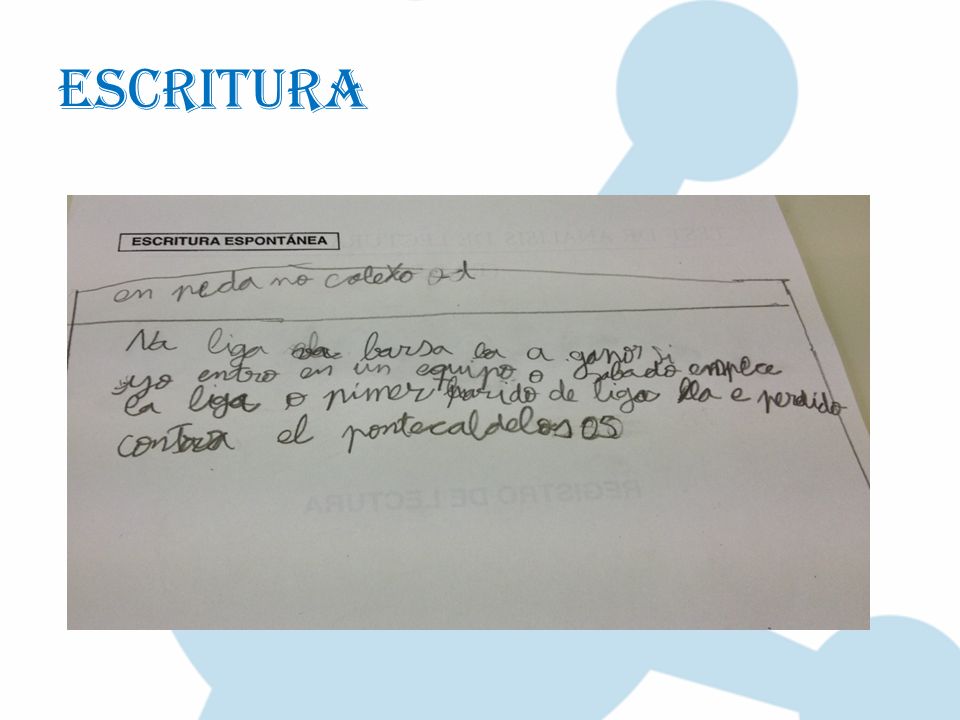 ESCRITURA
ESCRITURA ESPONTÁNEA
en peda no colexo
Na liga barsa ea a ganor si
yo entro en un equipo o sabado empece
la liga o pimer parido de liga e perdido
contra el pontecaldelos 05
REGISTRO DE LECTURA